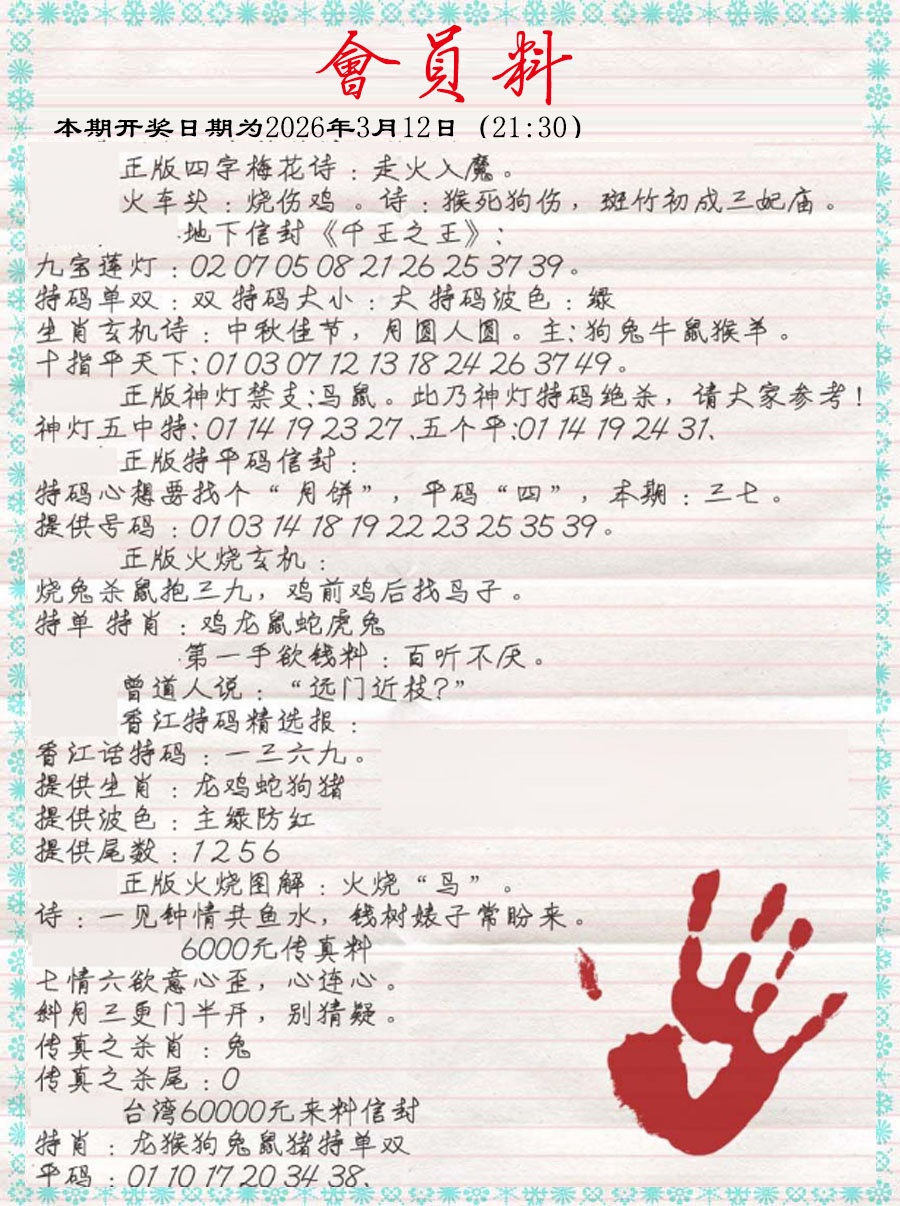 會員料
本期开奖日期为2026年3月12日（21:30）
正版四字梅花诗：走火入魔。
火车头：烧伤鸡 。诗：猴死狗伤，斑竹初成三妃庙。
地下信封《千王之王》：
九宝莲灯：02 07 05 08 21 26 25 37 39。
特码单双：双 特码大小：大 特码波色：绿
生肖玄机诗：中秋佳节，月圆人圆。主：狗兔牛鼠猴羊。
十指平天下：01 03 07 12 13 18 24 26 37 49。
正版神灯禁支：马鼠。此乃神灯特码绝杀，请大家参考！
神灯五中特：01 14 19 23 27、五个平：01 14 19 24 31、
正版特平码信封：
特码心想要找个“月饼”，平码“四”，本期：三七。
提供号码：01 03 14 18 19 22 23 25 35 39。
正版火烧玄机：
烧兔杀鼠抱三九，鸡前鸡后找马子。
特单 特肖：鸡龙鼠蛇虎兔
第一手欲钱料：百听不厌。
曾道人说：“远门近枝？”
香江特码精选报：
香江话特码：一三六九。
提供生肖：龙鸡蛇狗猪
提供波色：主绿防红
提供尾数：1 2 5 6
正版火烧图解：火烧“鸟”。
诗：一见钟情共鱼水，钱树婊子常盼来。
6000元传真料
七情六欲意心歪，心连心。
斜月三更门半开，别猜疑。
传真之杀肖：兔
传真之杀尾：0
台湾60000元来料信封
特肖：龙猴狗兔鼠猪特单双
平码：01 10 17 20 34 38、